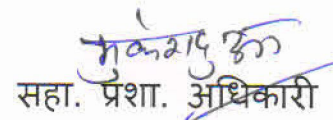 सहा. प्रशा. अधिकारी